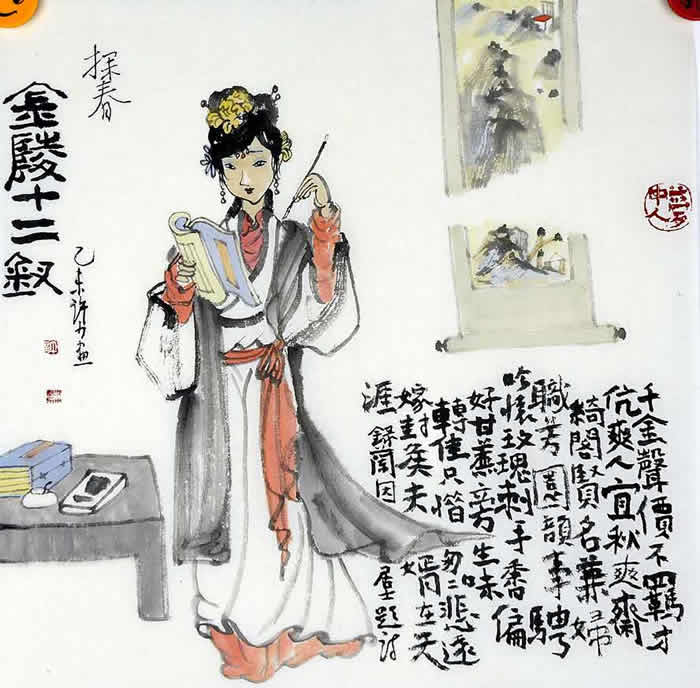 探春
金陵十二釵
乙未许画
千金聲價不羈才
伉爽人宜秋爽齋
綺閣賢名兼婦
職芳園韻事騁
吟懷玫瑰刺手香偏
好甘蕉旁生味
轉佳只惜匆匆悲遠
嫁封矦夫壻在天
涯 錄因居士題詩